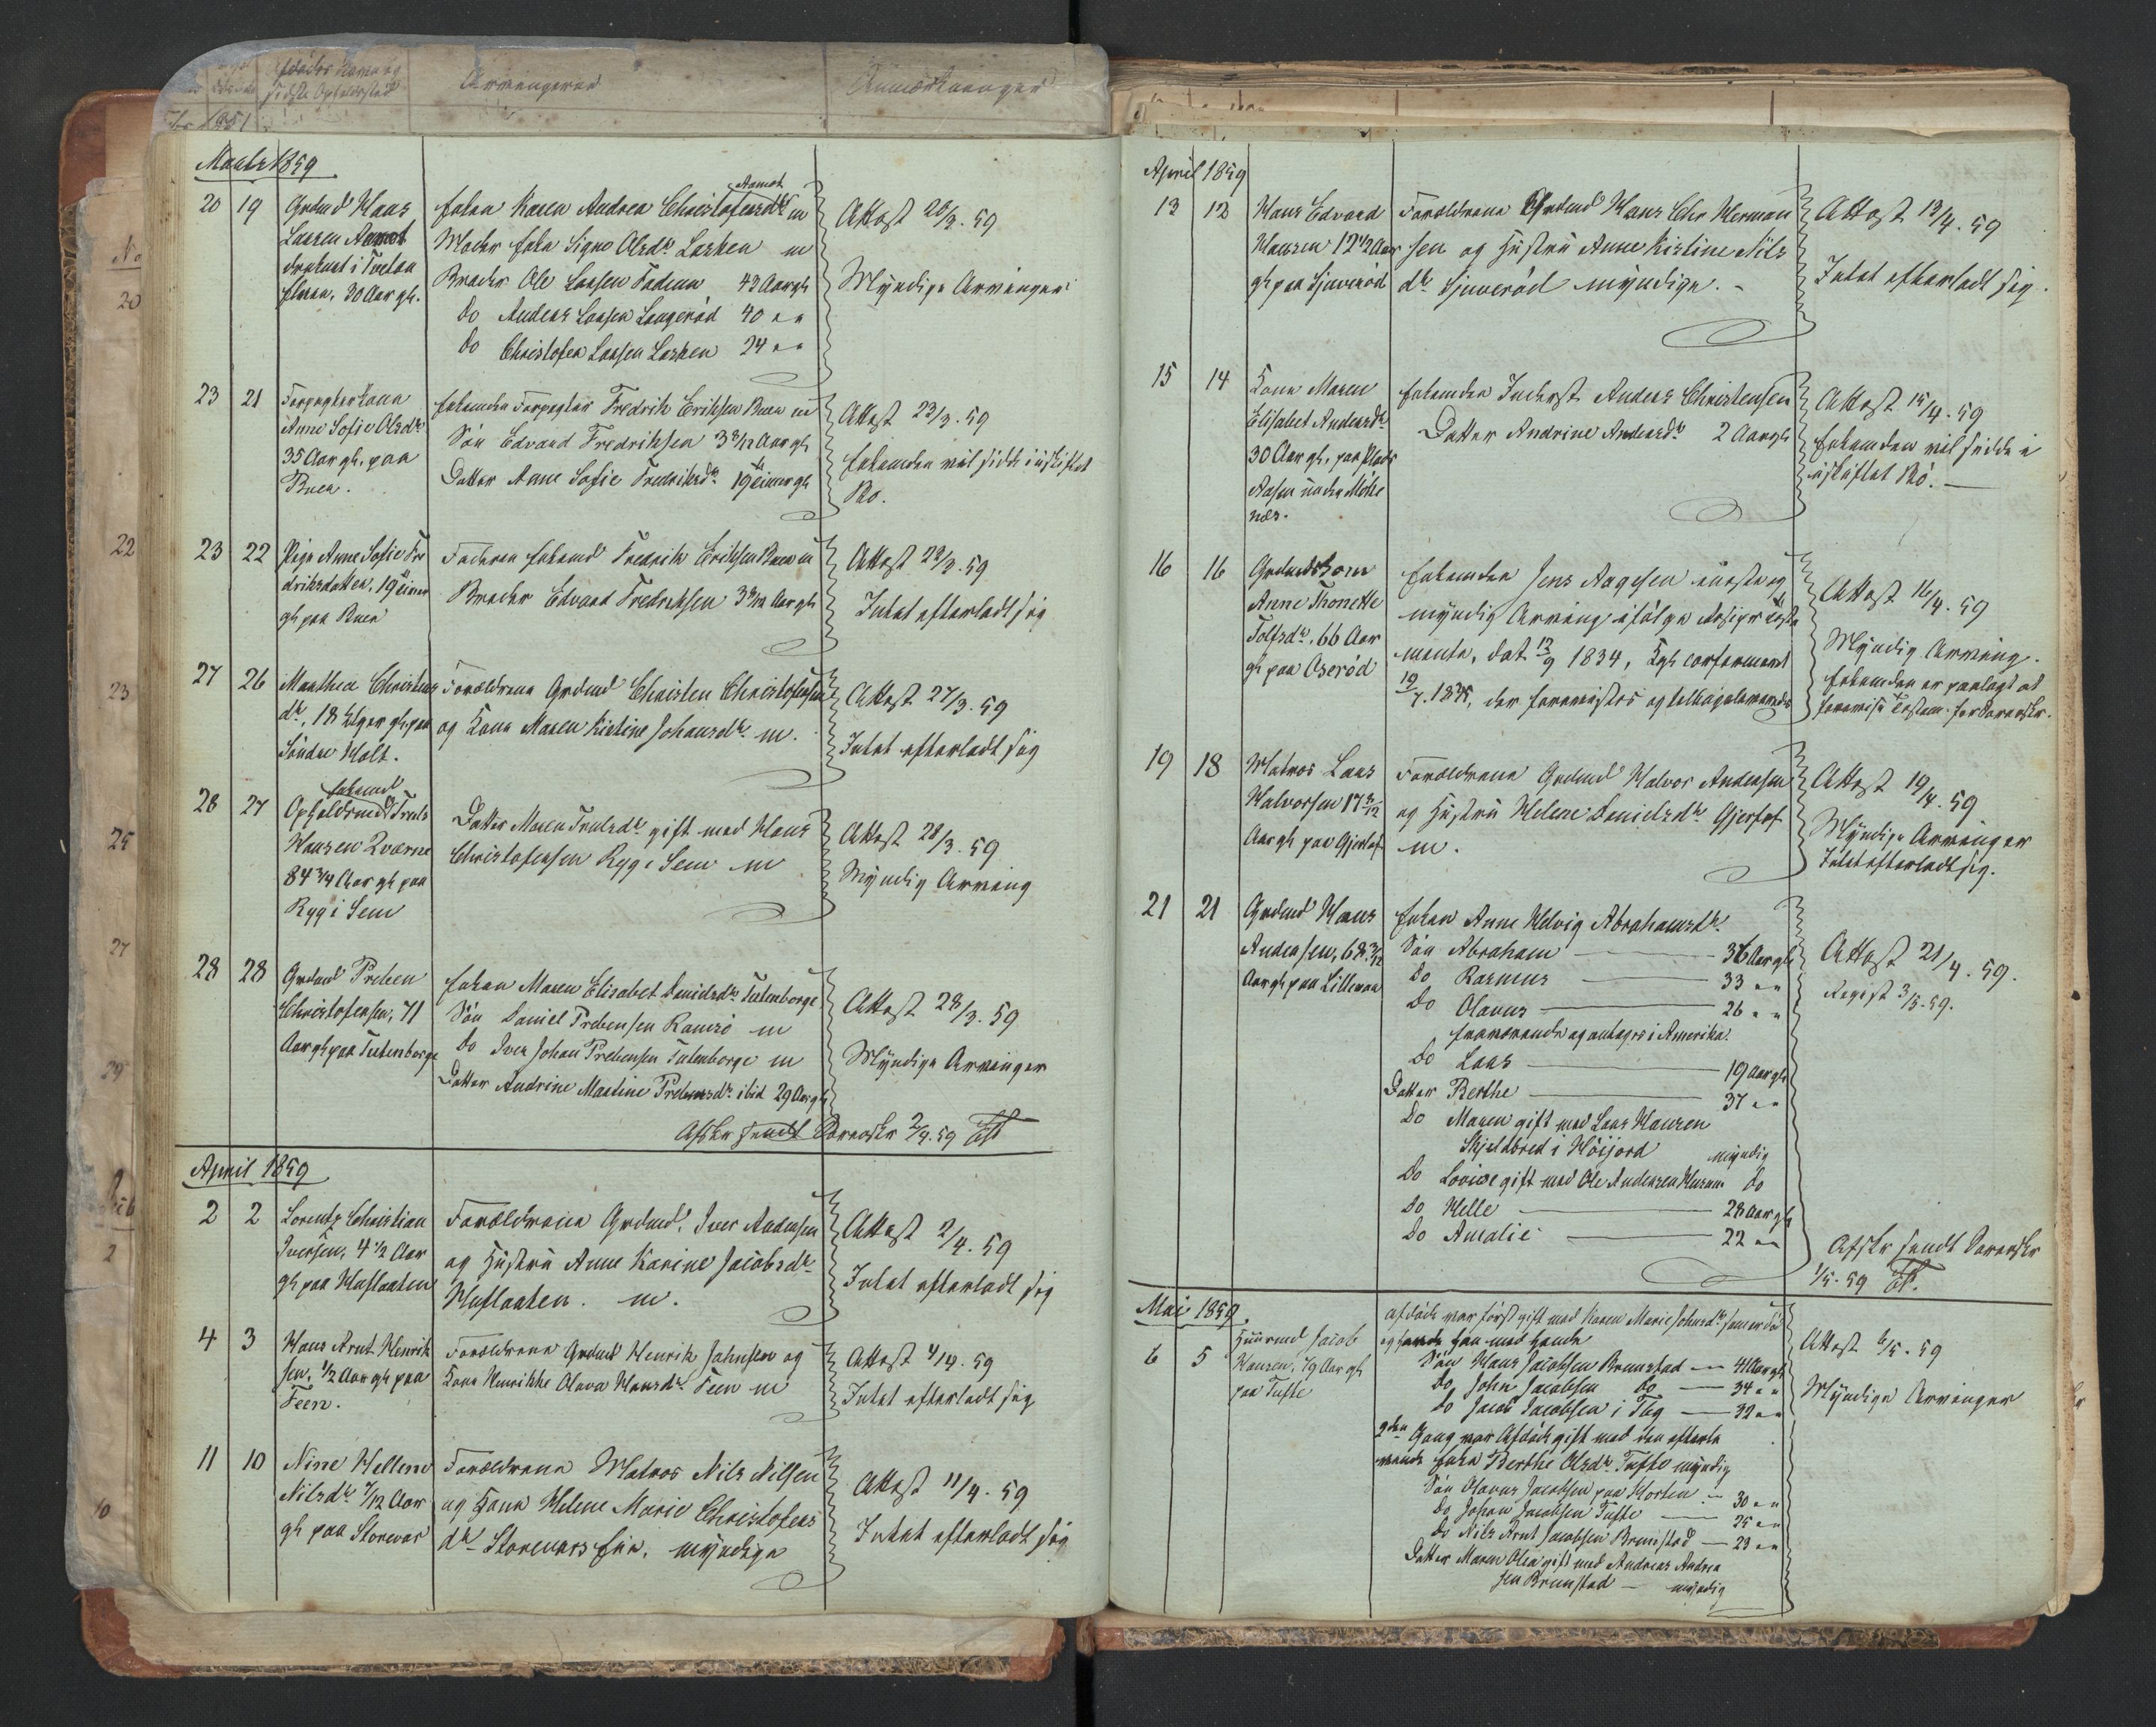 Afdödes Navn og
sidste Opholdssted
Arvingerne
Anmærkninger
1851
Marts 1859
20 19 Grdmd Hans
Larsen Aamot
druknet i Tvetaa
elven, 30 Aar gl.
Enken Karen Andrea Christofersdtr Aamot m
Moder Enke Signe Olsdtr Lasken m
Broder Ole Larsen Fadum 43 Aar gl
do Anders Larsen Langeröd 40 " "
do Christofer Larsen Lasken 24 " "
Attest 20/3. 59
Myndige Arvinger
23 21 Forpagterkone
Anne Sofie Olsdtr
35 Aar gl. paa
Buer.
Enkemden Forpagter Fredrik Eriksen Buer m
Sön Edvard Fredriksen 3 8/12 Aar gl
Datter Anne Sofie Fredriksdtr 19 Timer gl
Attest 23/3. 59
Enkemden vil sidde i uskiftet
Bo.
23 22 Pige Anne Sofie Fre
driksdatter, 19 Timer
gl paa Buer
Faderen Enkemd Fredrik Eriksen Buer m
Broder Edvard Fredriksen 3 8/12 Aar gl
Attest 23/3. 59
Intet efterladt sig
27 26 Marthea Christens
dtr, 18 Uger gl. paa
Söndre Holt.
Forældrene Grdmd Christen Christofersen
og Kone Maren Kistine Johansdtr m.
Attest 27/3. 59
Intet efterladt sig
28 27 Enkemd
Opholdsmd Truls
Hansen Qværne
84 3/4 Aar gl paa
Ryg i Sem
Datter Maren Trulsdtr gift med Hans
Christofersen Ryg i Sem m
Attest 28/3. 59
Myndig Arving
28 28 Grdmd Preben
Christofersen, 71
Aar gl paa Tutenborge
Enken Maren Elisabet Danielsdtr Tutenborge
Sön Daniel Prebensen Ramsö m
do Iver Johan Prebensen Tutenborge m
Datter Andrine Martine Prebensdtr ibid 29 Aar gl
Attest 28/3. 59
Myndige Arvinger
Afskr sendt Sorenskr 2/4. 59
April 1859
2 2 Lorentz Christian
Iversen, 4 1/2 Aar
gl paa Huflaaten
Forældrene Grdmd. Iver Andersen
og Hustru Anne Karine Jacobsdtr
Huflaaten. m.
Attest 2/4. 59
Intet efterladt sig
4 3 Hans Arnt Henrik
sen, 1/2 Aar gl paa
Feen.
Forældrene Grdmd Henrik Johnsen og
Kone Henrikke Olava Hansdtr Feen m
Attest 4/4. 59
Intet efterladt sig
11 10 Nine Hellene
Nilsdtr 7/12 Aar
gl paa Storevar
Forældrene Matros Nils Nilsen
og Kone Helene Marie Christofers
dtr Storevars Eie. myndige
Attest 11/4. 59
Intet efterladt sig
April 1859
13 12 Hans Edvard
Hansen 12 1/2 Aar
gl paa Sjuveröd
Forældrene Grdmd Hans Chr Herman
sen og Hustru Anne Kistine Nils
dtr Sjuveröd myndige. -
Attest 13/4. 59
Intet efterladt sig.
15 14 Kone Maren
Elisabet Andersdtr
30 Aar gl. paa Plads
Aasen under Melse
næs.
Enkemden Inderst Anders Christensen
Datter Andrine Andersdtr 2 Aar gl
Attest 15/4. 59
Enkemden vil sidde i
uskiftet Bo. -
16 16 Grdmdskone
Anne Thonette
Tolfsdtr. 66 Aar
gl paa Aseröd
Enkemden Jens Aagesen eneste og
myndig Arving ifölge Testa
mente, dat. 13/9 1834, Kgl confirmeret
19/7. 1835, der foreevistes og tilbageleveredes
Attest 16/4. 59
Myndig Arving.
Enkemden er paalagt at
forevise Testam. for Sorenskr.
19 18 Matros Lars
Halvorsen 17 3/12
Aar gl paa Gjerstad
Forældrene Grdmd Halvor Andersen
og Hustru Helene Danielsdtr Gjerstad
m.
Attest 19/4. 59
Myndige Arvinger
Intet efterladt sig.
21 21 Grdmd Hans
Andersen, 68 3/12
Aar gl paa Lilleraa
Enken Anne Helvig Abrahamsdtr.
Sön Abraham 36 Aar gl
do Rasmus 33 " "
do Olavus 26 " "
fraværende og antages i Amerika.
do Lars 19 Aar gl
Datter Berthe 37 " "
do Maren gift med Lars Hansen
Skjeldbred i Höijord myndig
do Lovise gift med Ole Andersen Husum do
do Helle 28 Aar gl
do Amalie 22 " "
Attest 21/4. 59.
Regist 3/5. 59.
Afskr sendt Sorenskr
1/5. 59
Mai 1859
6 5 Huusmd Jacob
Hansen, 79 Aar gl
paa Tufte
Afdöde var först gift med Karen Marie Johnsdtr som er död
og havde han med hende
Sön Hans Jacobsen Brunstad - 41 Aar gl
do John Jacobsen do - 34 " "
do Jacob Jacobsen i Tbg - 32 " "
2den Gang var Afdöde gift med den efterle
vende Enke Berthe Olsdtr Tufte myndig
Sön Olavus Jacobsen paa Horten - 30 " "
do Johan Jacobsen Tufte - 25 " "
do Nils Arnt Jacobsen Brunstad - 23 " "
Datter Maren Olea gift med Andreas Andrea
sen Brunstad - myndig
Attest 6/5. 59
Myndige Arvinger